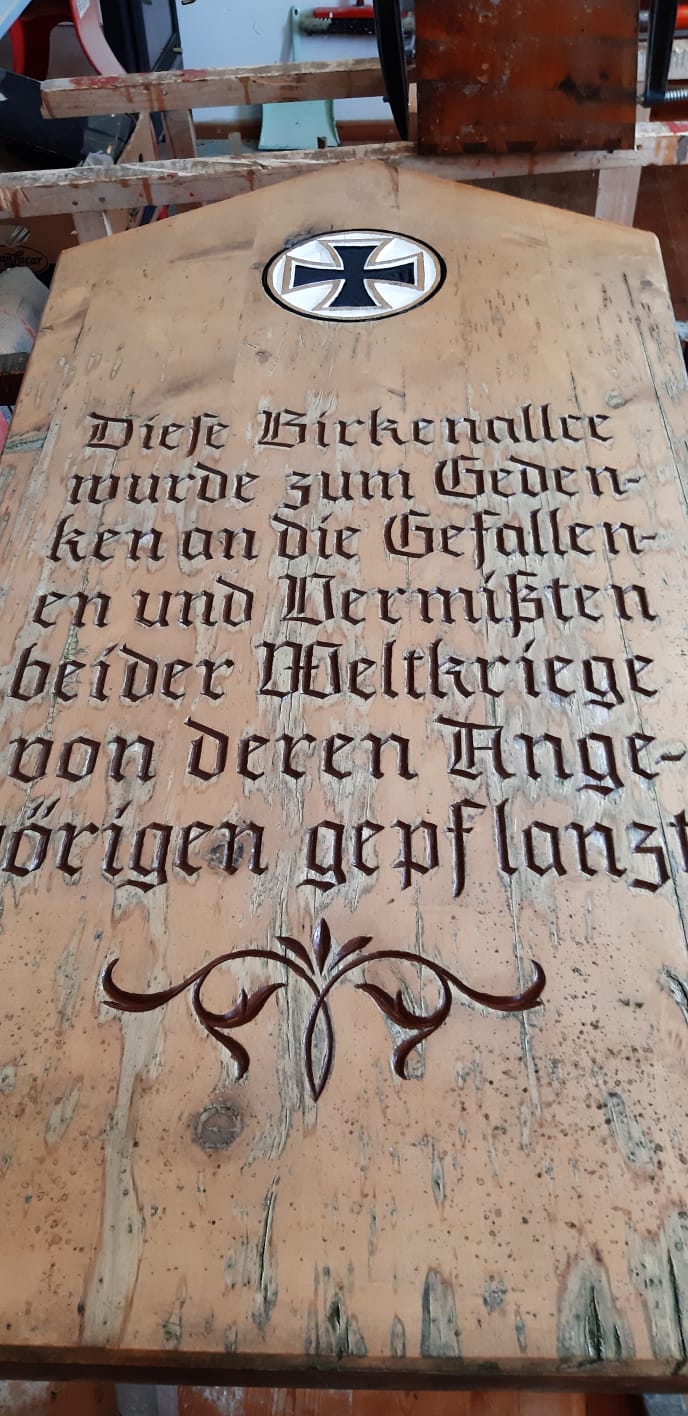 Dieſe Birkenallee
wurde zum Geden-
ken an die Gefallen-
en und Vermißten
beider Weltkriege
von deren Ange-
hörigen gepflanzt